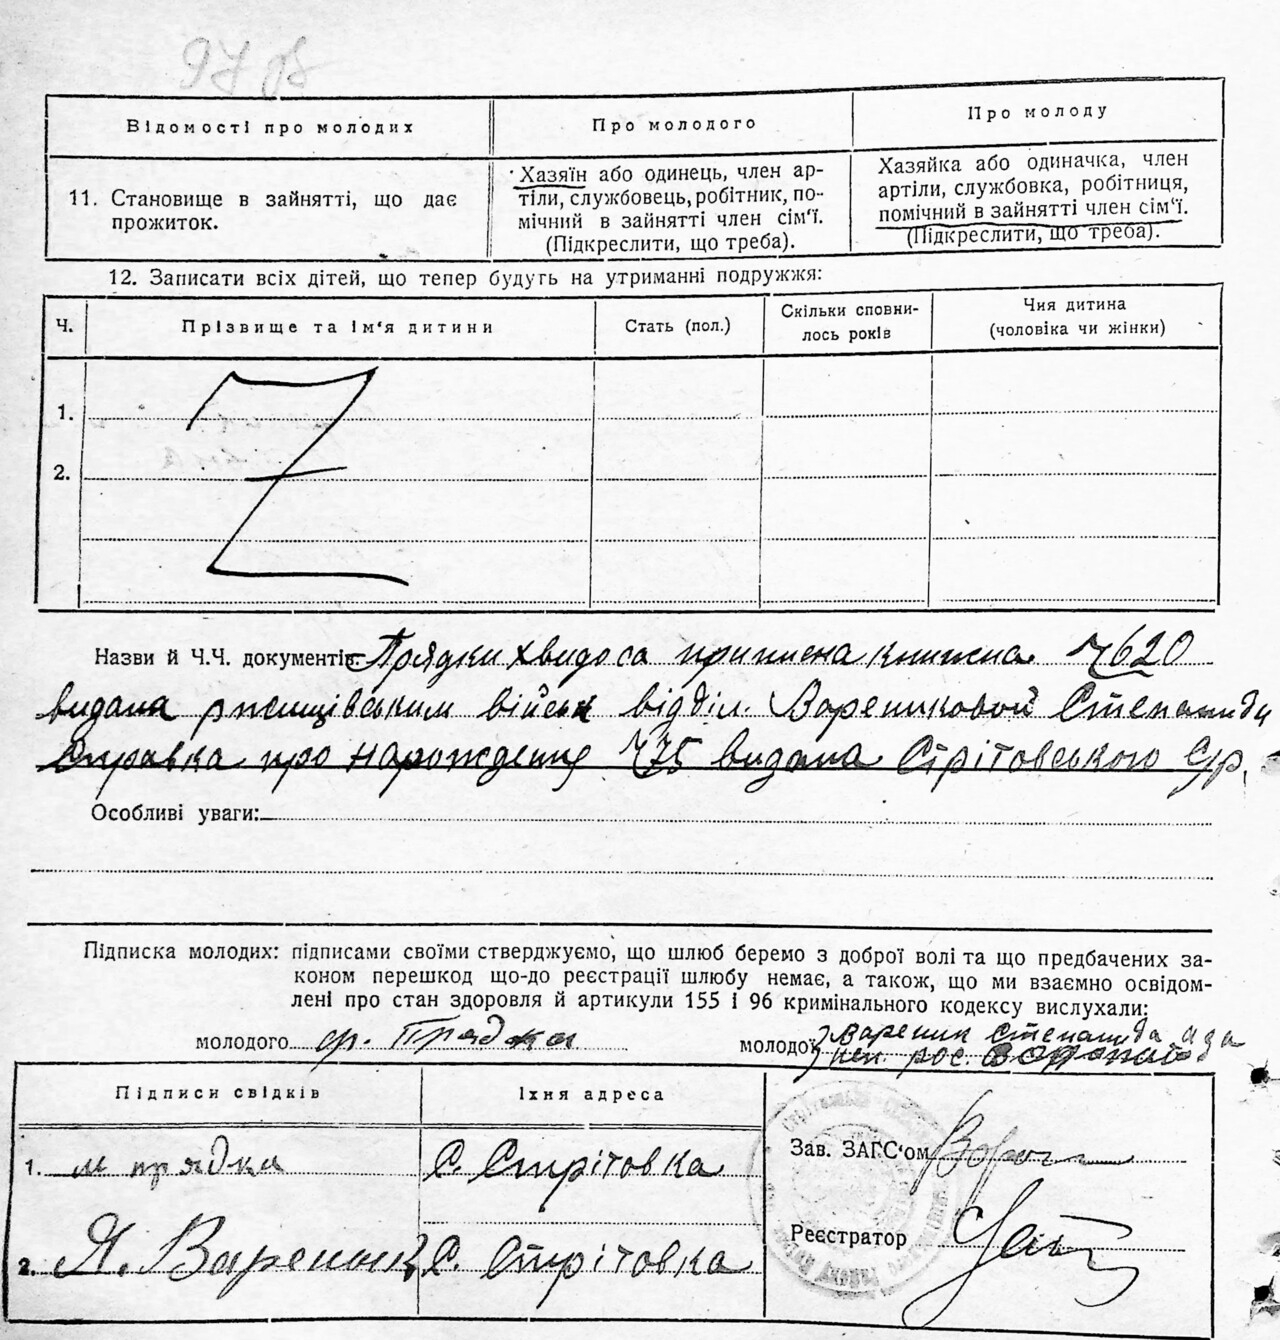 97
Відомості про молодих
Про молодого
Про молоду
11. Становище в зайнятті, що дає
прожиток.
Хазяїн або одинець, член ар-
тіли, службовець, робітник, по-
мічний в зайнятті член сім'ї.
(Підкреслити, що треба).
Хазяйка або одиначка, член
артіли, службовка, робітниця,
помічний в зайнятті член сім'ї.
(Підкреслити, що треба).
12. Записати всіх дітей, що тепер будуть на утриманні подружжя:
Ч.
Прізвище та ім'я дитини
Стать (пол.)
Скільки сповни-
лось років
Чия дитина
(чоловіка чи жінки)
1.
2.
Назви й Ч.Ч. документів: Прядки Хвидоса приписна книжка 7620
видана ржищівським військ відділ. Варениковой Степаниди
Справка про нарождение 775 видана Стрітовського с/р.
Особливі уваги:
Підписка молодих: підписами своїми стверджуємо, що шлюб беремо з доброї волі та що предбачених за-
коном перешкод що-до реєстрації шлюбу немає, а також, що ми взаємно освідом-
лені про стан здоровля й артикули 155 і 96 кримінального кодексу вислухали:
молодого ф. Прядка
молодої Вареник Степанида а за
неп. рос.
Підписи свідків
Їхня адреса
1. м прядка
с. Стрітовка
2. Я. Вареник
с. Стрітовка
Зав. ЗАГС'ом
Реєстратор